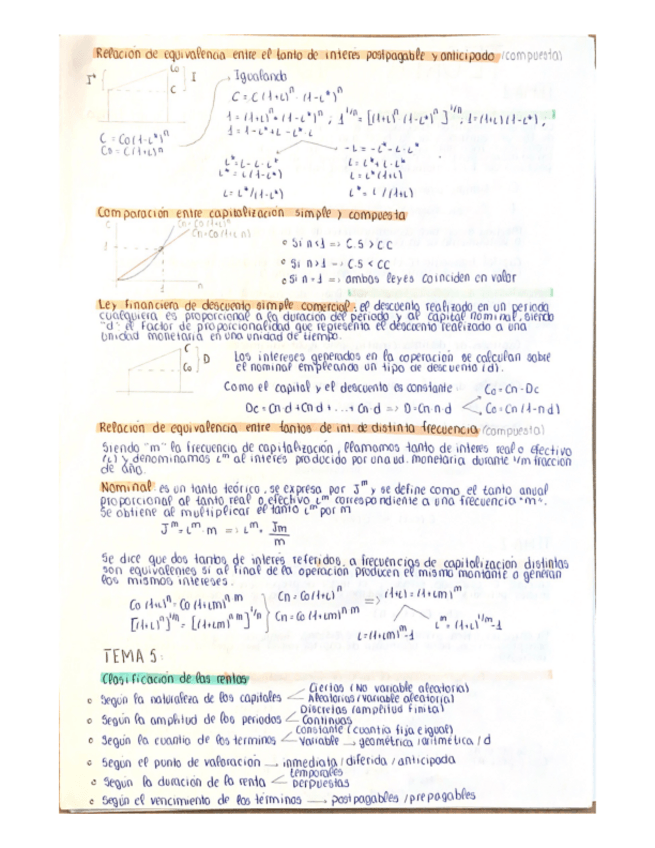 Relación de equivalencia entre el tanto de interés postpagable y anticipado (compuesta)
I* Co I
C
C = Co(1-i*)ⁿ
Co = C(1+i)ⁿ
Igualando
C = C(1+i)ⁿ · (1-i*)ⁿ
1 = (1+i)ⁿ · (1-i*)ⁿ ; 1^1/n = [(1+i)ⁿ (1-i*)ⁿ]^1/n ; 1 = (1+i)(1-i*) ;
1 = 1-i*+i-i*·i
i* = i-i·i*
i* = i(1-i*)
i = i*/(1-i*)
-i = -i*-i·i*
i = i*+i·i*
i = i*(1+i)
i* = i/(1+i)
Comparación entre capitalización simple y compuesta
C
Cn = Co(1+i)ⁿ
Cn = Co(1+i·n)
1
1
n
Si n<1 => C.S > CC
Si n>1 => C.S < CC
Si n=1 => ambas leyes coinciden en valor
Ley financiera de descuento simple comercial: el descuento realizado en un periodo
cualquiera es proporcional a la duración del periodo y al capital nominal, siendo
"d" el factor de proporcionalidad que representa el descuento realizado a una
unidad monetaria en una unidad de tiempo.
C
Co
D
Los intereses generados en la operación se calculan sobre
el nominal empleando un tipo de descuento (d).
Como el capital y el descuento es constante
Dc = Cn·d + Cn·d + ... + Cn·d => D = Cn·n·d
Co = Cn - Dc
Co = Cn (1-n·d)
Relación de equivalencia entre tantos de int. de distinta frecuencia (compuesta)
Siendo "m" la frecuencia de capitalización, llamamos tanto de interés real o efectivo
(i) y denominamos iᵐ al interés producido por una ud. monetaria durante 1/m fracción
de año.
Nominal es un tanto teórico, se expresa por Jᵐ y se define como el tanto anual
proporcional al tanto real o efectivo iᵐ correspondiente a una frecuencia "m".
Se obtiene al multiplicar el tanto iᵐ por m
Jᵐ = iᵐ · m => iᵐ = Jm/m
Se dice que dos tantos de interés referidos a frecuencias de capitalización distintas
son equivalentes si al final de la operación producen el mismo montante o generan
los mismos intereses.
Co(1+i)ⁿ = Co(1+im)ⁿᵐ
[(1+i)ⁿ]^1/n = [(1+im)ⁿᵐ]^1/n
Cn = Co(1+i)ⁿ
Cn = Co(1+im)ⁿᵐ
=> (1+i) = (1+im)ᵐ
i = (1+im)ᵐ-1
iᵐ = (1+i)^1/m-1
TEMA 5:
Clasificación de las rentas
Según la naturaleza de los capitales
Ciertas (No variable aleatoria)
Aleatorias (variable aleatoria)
Según la amplitud de los periodos
Discretas (amplitud finita)
Continuas
Según la cuantía de los términos
Constante (cuantía fija e igual)
Variable → geométrica / aritmética / d
Según el punto de valoración → inmediata / diferida / anticipada
Según la duración de la renta
temporales
perpuestas
Según el vencimiento de los términos → postpagables / prepagables